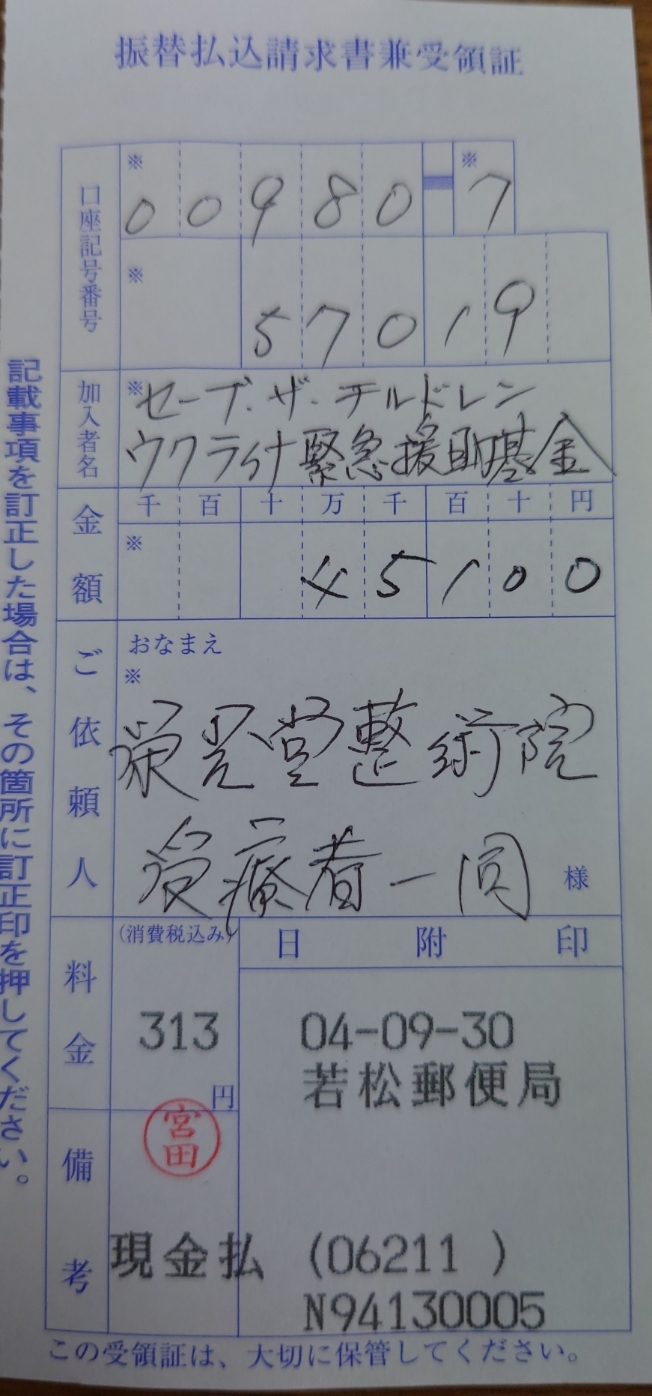 振替払込請求書兼受領証
口座記号番号
※ ※
00980-7
※
57019
加入者名
※セーブ・ザ・チルドレン
ウクライナ緊急援助基金
金額
千百十万千百十円
※
45100
ご依頼人
おなまえ
※
栄光堂整術院
受療者一同
様
料金
(消費税込み)
313
円
日附印
04-09-30
若松郵便局
備考
宮田
現金払 (06211 )
N94130005
記載事項を訂正した場合は、その箇所に訂正印を押してください。
この受領証は、大切に保管してください。